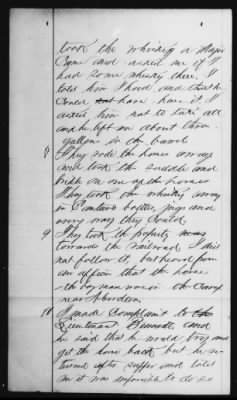 took the whiskey a Major
Came and asked me if I
had some whiskey there. I
told him I had and that he
could have it. I
asked him not to take all
and he left me about three
gallons in the barrel
8 They rode the horses away
and took the saddle and
bridle on one of the horses
They took the whiskey away
in Canteens bottles, jugs and
every way they could
9 They took the property away
towards the railroad I did
not follow it, but heard from
an officer that the horse
the boy man was in the Camp
near Aberdeen.
10 I made Complaint to the
Lieutenant and
he said that he would try and
get the horse back but he re-
turned after supper and told
me it was impossible to do so